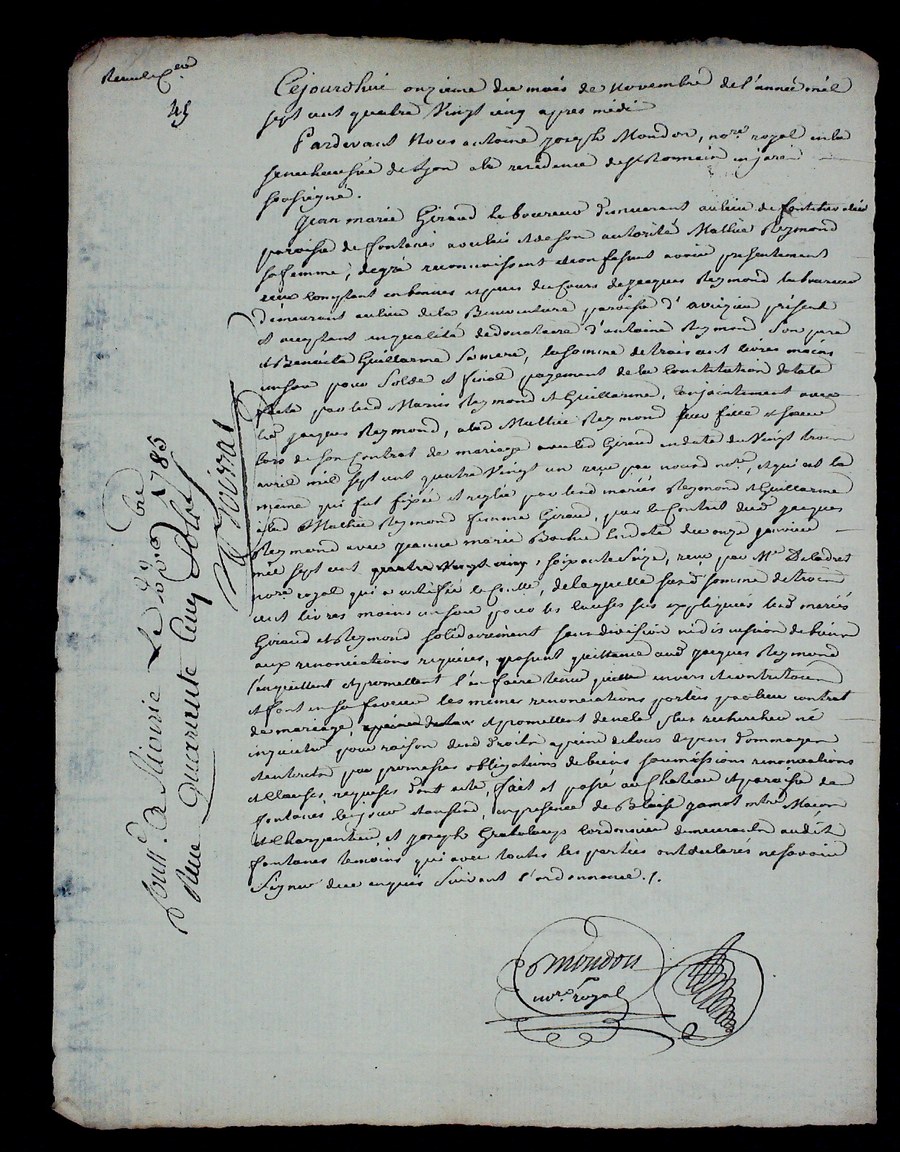 45
Cejourdhui onzieme du mois de novembre de l'année mil
sept cent quatre vingt cinq apres midi
Pardevant Nous antoine joseph Mondon, nore royal en la
senechaussée de Lyon a la residence de st Romain en jarèt
soussigné.
Jean marie Giraud laboureur demeurant au lieu de
paroisse de fontanès avec luis et de son autorité Mathie Reymond
sa femme, de gré reconnoissent et confessent avoir presentement
eu comptant en bonnes especes du Cours de jacques Reymond laboureur
demeurant au lieu de la paroisse d'aveizieu present
et acceptant en qualité de donataire d'antoine Reymond son pere
et Benoite Guillarme sa mere, la somme de trois cent livres moins
un sou pour solde et final payement de la Constitution dotale
faite par lesd Mariés Reymond et Guillarme, conjointement avec
led jacques Reymond, a lad Mathie Reymond leur fille et soeur
lors de son Contrat de mariage avec led Giraud en date du vingt trois
avril mil sept cent quatre vingt un recu par nous nore, et qui est la
même qui fut fixée et reglée par lesd mariés Reymond et Guillarme
a lad Mathie Reymond femme Giraud, par le Contrat dud jacques
Reymond avec jeanne marie en date du onze janvier
mil sept cent soixante seize, recu par Me
nore royal qui a de laquelle susd somme de trois
cent livres moins un sou pour les causes sus expliquées lesd mariés
Giraud et Reymond solidairement sans division ni discussion de biens
aux renonciations requises, passent quittance aud jacques Reymond
l'en quittent et promettent l'en faire tenir quitte envers et contre tous
et font en sa faveur les mêmes renonciations portées par leur contrat
de mariage, et promettent de ne le plus rechercher ni
inquieter pour raison desd droits a peine de tous depens dommages
et interets par promesses obligations de biens soumissions renonciations
et clauses requises dont acte, fait et passé au Chateau et paroisse de
fontanes les jour et an susd, en presence de Blaise mtre Macon
et Charpentier, et joseph cordonnier demeurants audit
fontanes temoins qui avec toutes les parties ont declarés ne savoir
signer de ce enquis suivant l'ordonnance ./.
mondon
nore royal
Le 1785
Recu Quarante Cinq sols